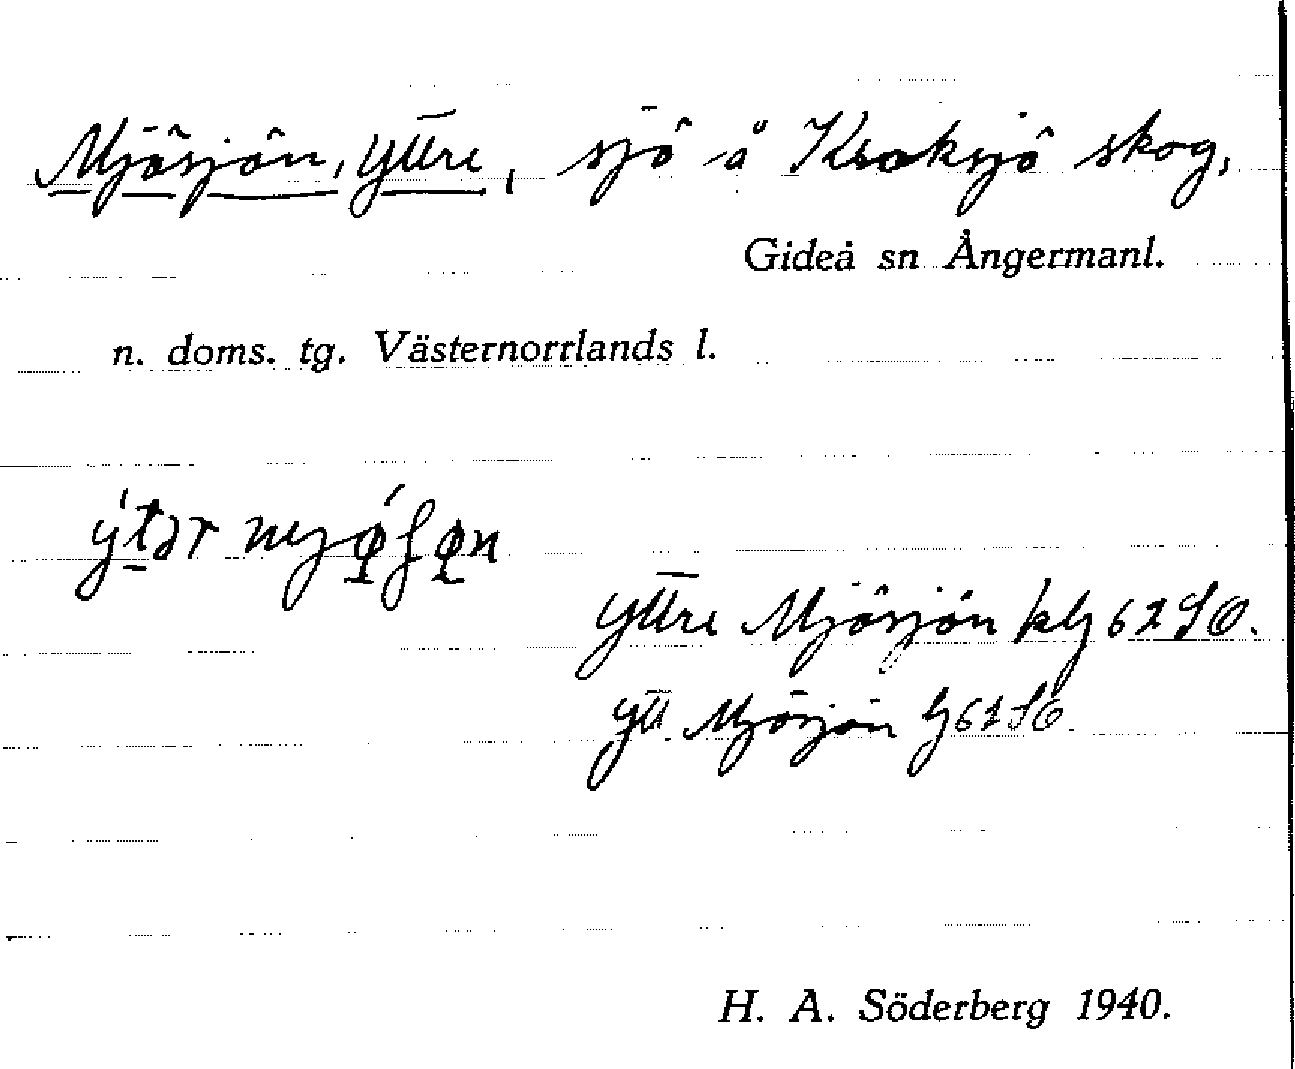 Mjösjön, Yttre, sjö å Kroksjö skog,
Gideå sn Ångermanl.
n. doms. tg. Västernorrlands l.
Yttre Mjösjön klj 62 SO.
Ytt. Mjösjön lj 61 SO
H. A. Söderberg 1940.